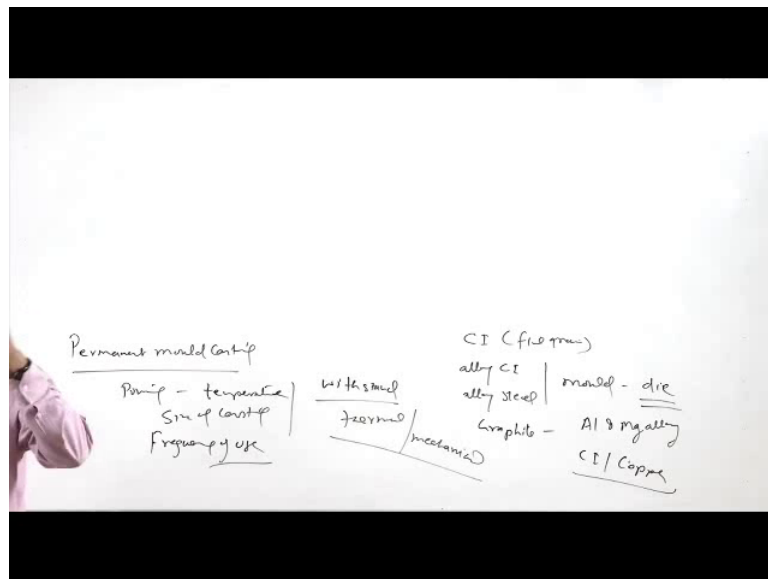 Permanent mould casting
Pouring - temperature
Size of casting
Frequency of use
withstand
thermal / mechanical
CI (fine grain)
alloy CI
alloy steel
mould - die
Graphite - Al & Mg alloy
CI / Copper